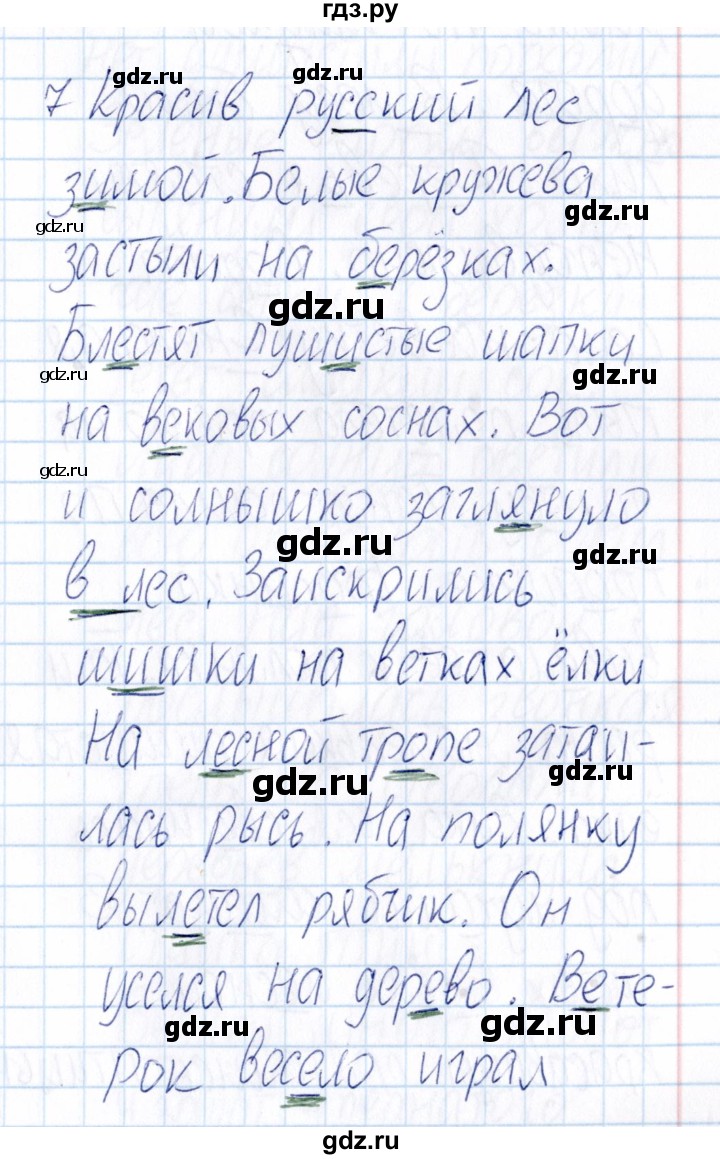 гдз.ру
gdz.ru
gdz.ru
7 Красив русский лес
зимой. Белые кружева
gdz.ru
gdz.ru
застыли на берёзках.
gdz.ru
Блестят пушистые шапки
gdz.ru
gdz.ru
на вековых соснах. Вот
gdz.ru
и солнышко заглянуло
gdz.ru
gdz.ru
в лес. Заискрились
шишки на ветках ёлки
На лесной тропе затаи-
gdz.ru
gdz.ru
лась рысь. На полянку
вылетел рябчик. Он
уселся на дерево. Вете-
gdz.ru
gdz.ru
рок весело играл
gdz.ru
gdz.ru